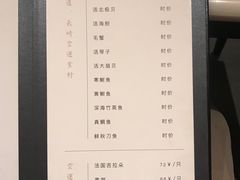 道·长崎空运食材
活北极贝 时价
活海胆 时价
毛蟹 时价
活带子 时价
活大扇贝 时价
寒鰤鱼 时价
黄鰤鱼 时价
深海竹荚鱼 时价
真鲷鱼 时价
鲜秋刀鱼 时价
空运
法国吉拉朵 72¥/只